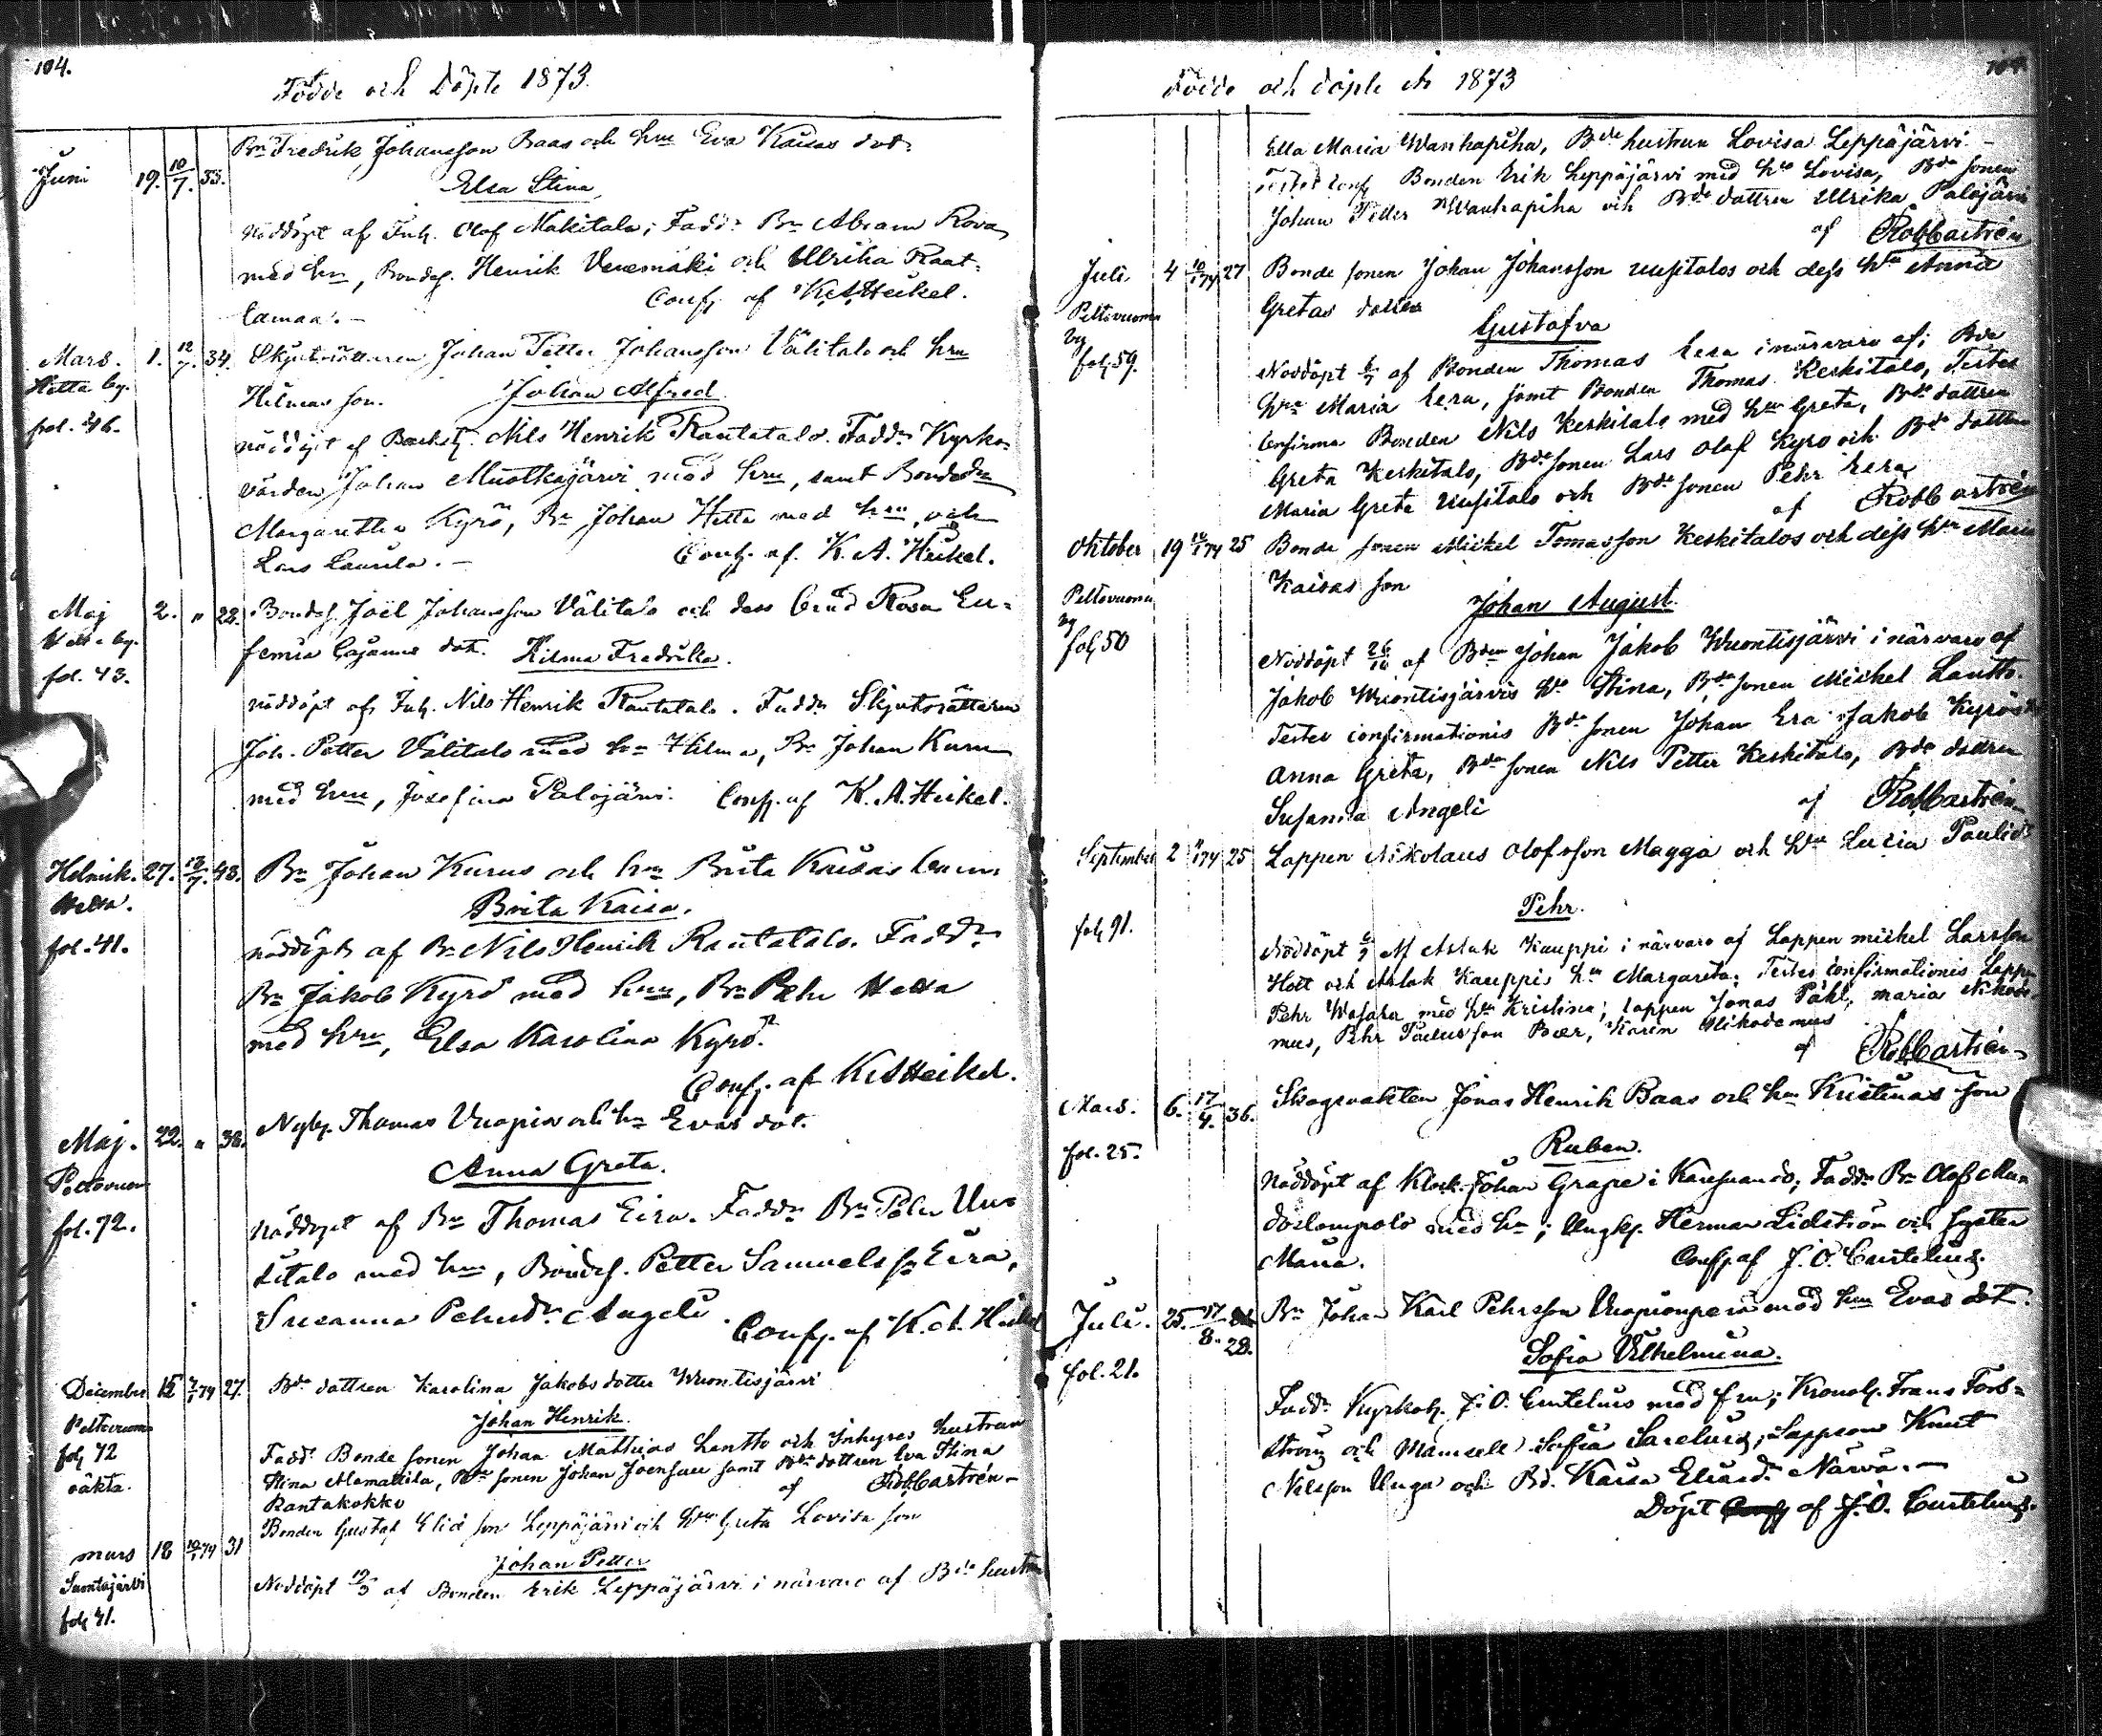 104.
Födde och Döpte 1873.
Bn Fredrik Johansson Baas och hru Eva Kaisas dot.
Juni 19. 10/7. 33.
Elsa Stina
nöddöpt af Inh. Olof Makitalo; Fadd. Bn Abram Rova
med hru, Bondes. Henrik Venemäki och Ullrika Raat-
aamaa. – Conf. af K.A.Heikel.
Mars. 1. 12/7. 34. Skjutsrättaren Johan Petter Johansson Välitalo och hru
Hetta by. Hilmas son. Johan Alfred
fol. 46. nöddöpt af Nils Henrik Rantatalo. Fadd. Kyrko-
värden Johan Muotkajärvi med hru, samt Bondedn
Margaretha Kyrö, Bn Johan Hetta med hru och
Lars Laurila. – Conf. af. K. A. Heikel.
Maj 2. " 22. Bondes. Joël Johansson Välitalo och dess brud Rosa Eu-
Hetta by. femia Cajanus dot. Hilma Fredrika.
fol. 43.
nöddöpt af Inh. Nils Henrik Rantatalo. Fadd. Skjutsrättaren
Joh. Petter Välitalo med hru Hilma, Bn Johan Kuru
med hru, Josefina Palojärvi. Conf. af K. A. Heikel.
27. 12/7. 43. Bn Johan Kurus och hru Brita Kaisas barn
Hetta. Brita Kaisa.
fol. 41. nöddöpt af Bn Nils Henrik Rantatalo. Fadd.
Bn Jakob Kyrö med hru, Bn Pehr Hetta
med hru, Elsa Karolina Kyrö.
Conf. af K.A.Heikel.
Maj. 22. " 38. Nyby. Thomas Vuopios och hru Evas dot.
Peltovuom Anna Greta.
fol. 72. nöddöpt af Bn Thomas Eira. Fadd. Bn Peter Uu-
sitalo med hru, Bondes. Petter Samuels sn Eira,
Susanna Pehrsdr. Angeli. Conf. af K. A. Heikel
December 15 /1 74 27. Bde dottren Karolina Jakobs dotter Wuontisjärvi
Peltovuom Johan Henrik.
fol 72 Fadd. Bonde sonen Johan Mathias Lantto och Inhyses hustrun
oäkta. Stina Alamattila, Bde sonen Johan Joensuu samt Bde dottren Eva Stina
Rantakokko af Rob Castrén
mars 18 10/1 74 31 Bonden Gustaf Elias son Leppäjärvi och hru Greta Lovisa son
Suontajärvi Johan Petter
fol 41. Nöddöpt 19/3 af Bonden Erik Leppäjärvi i närvaro af Bde hustru
Födde och döpte år 1873
Ella Maria Wanhapiha, Bde hustrun Lovisa Leppäjärvi –
Testes conf Bonden Erik Leppäjärvi med hru Lovisa, Bde sonen
Johan Petter Wanhapiha och Bde dottren Ullrika Palojärvi
af Rob Castrén
Juli 4 10/1 74 27 Bonde sonen Johan Johansson Uusitalos och dess hru Anna
Peltovuoma Gretas dotter
by Gustafva
fol 59. Nöddöpt 6/7 af Bonden Thomas Eera i närvaro af; Bde
hru Maria Eera, samt Bonden Thomas Keskitalo, Testes
Confirma Bonden Nils Keskitalo med hru Greta, Bde dottren
Greta Keskitalo, Bde sonen Lars Olof Kyro och Bde dottren
Maria Greta Uusitalo och Bde sonen Pehr Eera
af Rob Castrén
Oktober 19 12/1 74 25 Bonde sonen Michel Tomasson Keskitalos och dess hru Maria
Peltovuoma Kaisas son
by Johan August.
fol 50 Nöddöpt 26/10 af Bden Johan Jakob Wuontisjärvi i närvaro af
Jakob Wuontisjärvis hru Stina, Bde sonen Michel Lantto.
Testes confirmationis Bde sonen Johan Era Jakob Kyrös
Anna Greta, Bde sonen Nils Petter Keskitalo, Bde dottren
Susanna Angeli af Rob Castrén
September 2 /1 74 25 Lappen Nikolaus Olofsson Magga och hru Lucia Paulid.
Pehr.
fol 91. Nöddöpt af Aslak Kauppi i närvaro af Lappen Michel Larsson
Hott och Aslak Kauppis hru Margareta; Testes confirmationis Lappen
Pehr Wasara med hru Kristina; Lappen Jonas Påhl, Maria Nikode-
mus, Pehr Paulusson Baer, Karin Nikodemus
af Rob Castrén
Mars. 6. 17/4. 36. Skogsvakten Jonas Henrik Baas och hru Kristinas son
fol. 25. Ruben.
Nöddöpt af Klock. Johan Grape i Karesuando; Fadd. Bn Olof Mun
noslompolo med hru; Ungk. Herman Lidström och syster
Maria. Conf. af J. O. Curtelius.
Juli. 25. 17/8. 28. Bn Johan Karl Pehrsson Vuopionperä med hru Evas dot.
fol. 21. Sofia Vilhelmina.
Fadd. Kyrkoh. J. O. Curtelius med fru; Kronol. Frans Fors-
ström och Mamsell Sofia Sarelius; Lappson Knut
Nilsson Unga och Bd. Kaisa Eliasd. Närvä. –
Döpt af J. O. Curtelius.